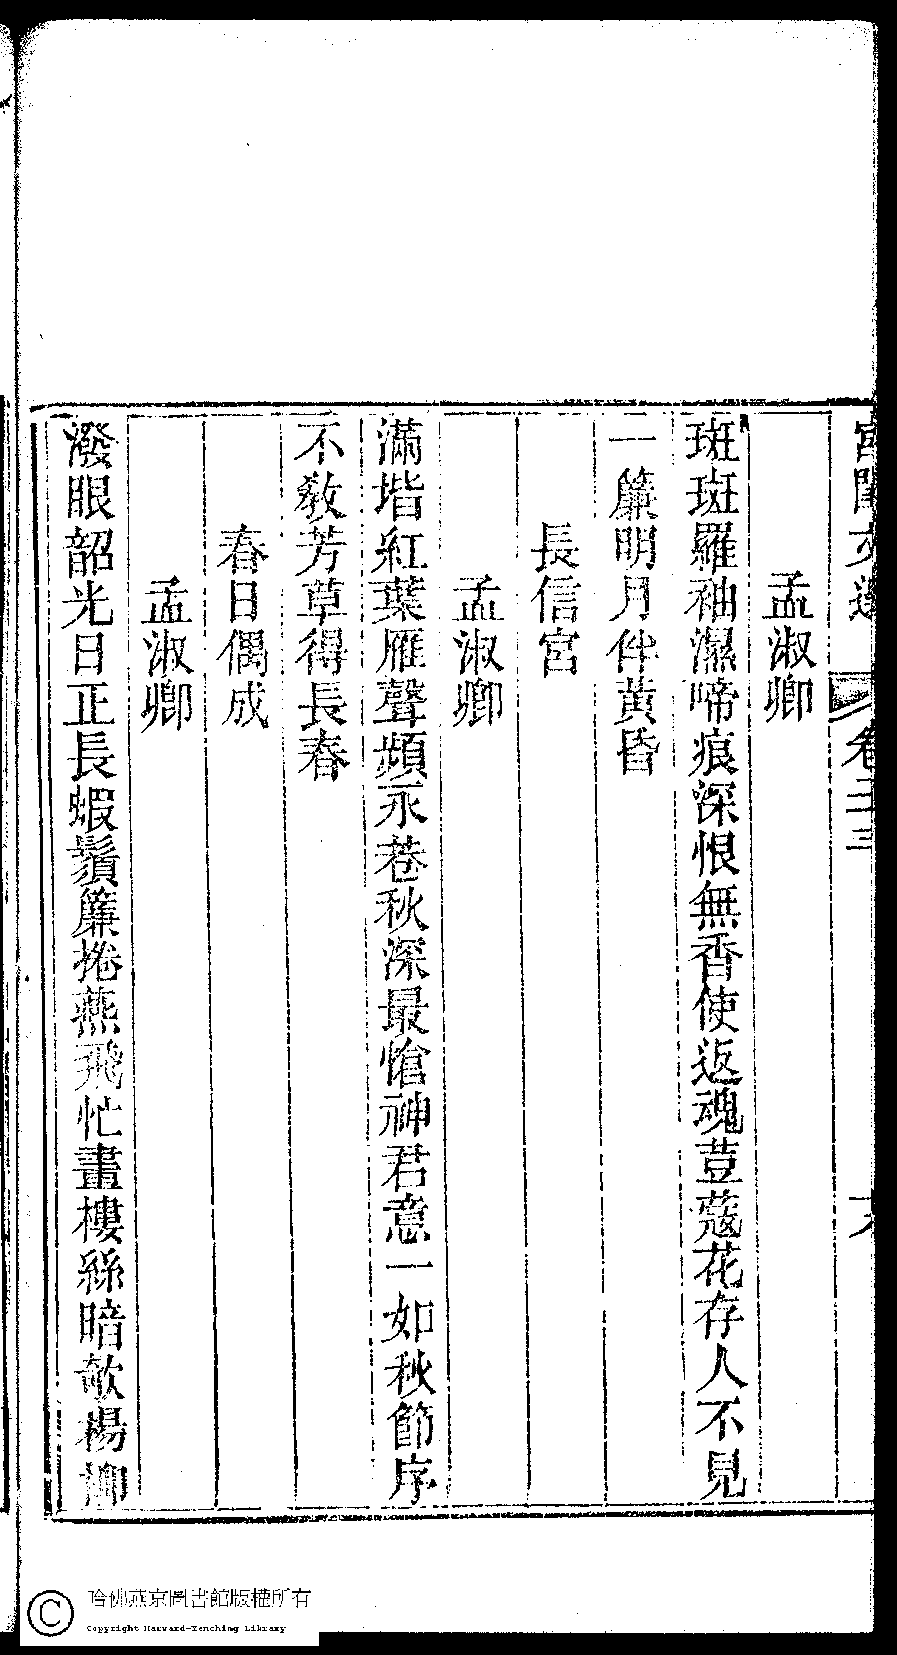 宮閨文選 卷二三 十八
孟淑卿
斑斑羅袖濕啼痕深恨無香使返魂荳蔻花存人不見
一簾明月伴黃昏
長信宮
孟淑卿
滿堦紅葉雁聲頻永巷秋深最愴神君意一如秋節序
不敎芳草得長春
春日偶成
孟淑卿
潑眼韶光日正長蝦鬚簾捲燕飛忙畫樓絲暗欹楊柳
哈佛燕京圖書館版權所有
Copyright Harvard-Yenching Library